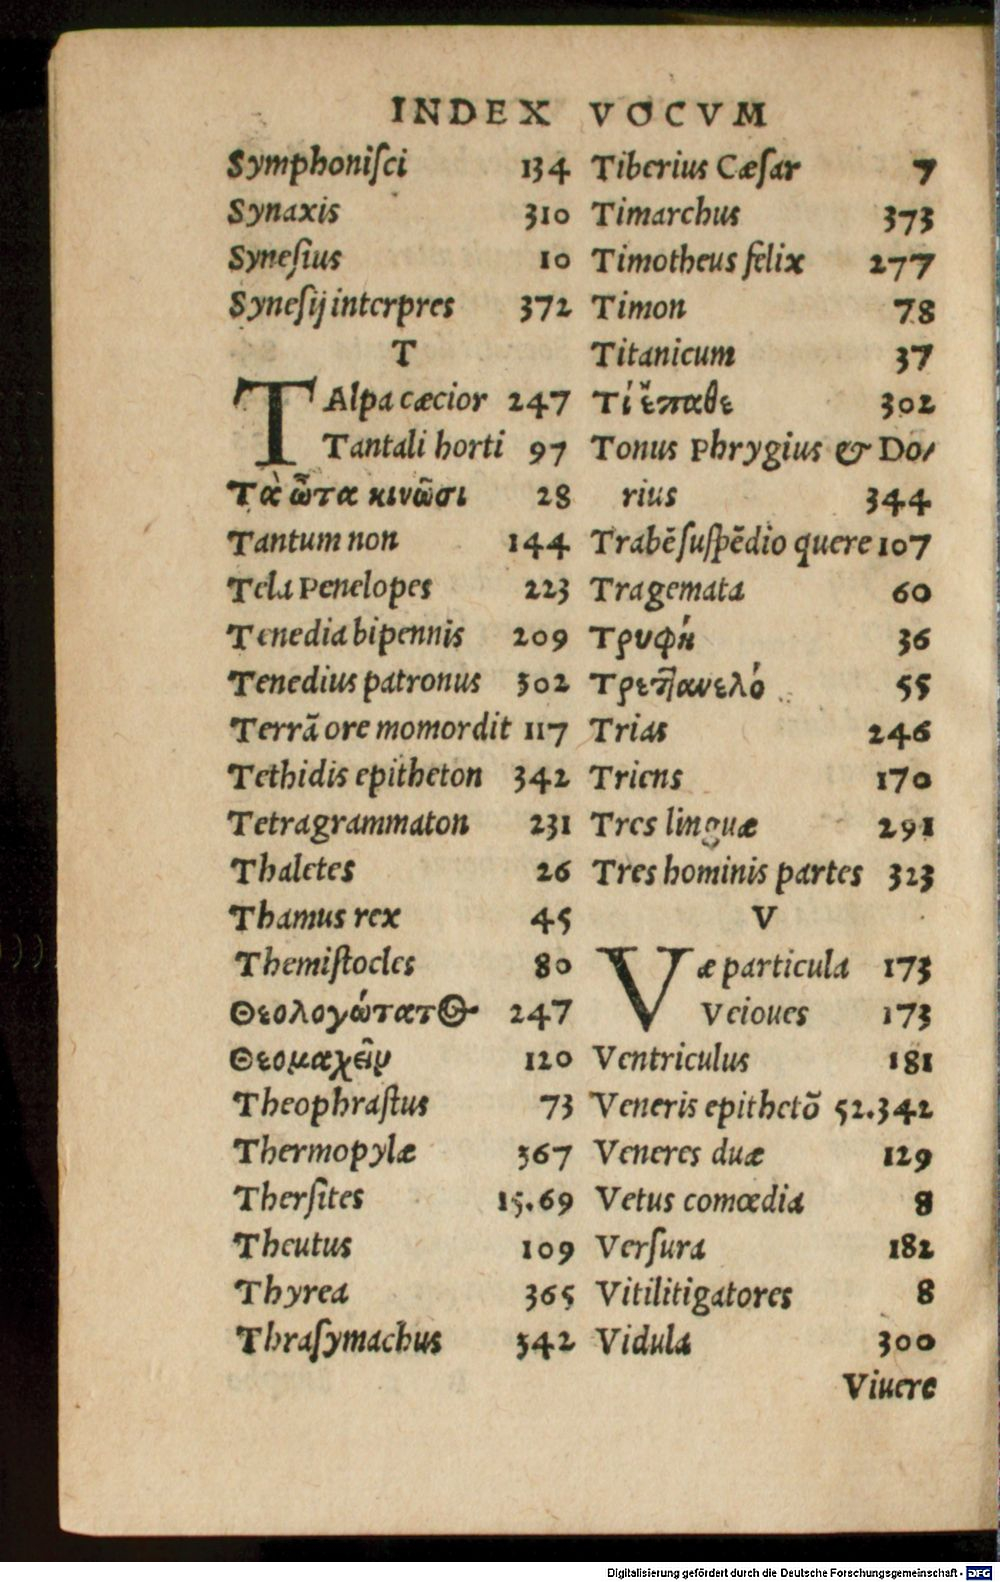 INDEX VOCVM
Symphoniſci 134
Synaxis 310
Syneſius 10
Syneſij interpres 372
T
TAlpa cæcior 247
Tantali horti 97
Τὰ ὦτα κινῶσι 28
Tantum non 144
Tela Penelopes 223
Tenedia bipennis 209
Tenedius patronus 302
Terrã ore momordit 117
Tethidis epitheton 342
Tetragrammaton 231
Thaletes 26
Thamus rex 45
Themiſtocles 80
Θεολογώτατος 247
Θεομαχεῖν 120
Theophraſtus 73
Thermopylæ 367
Therſites 15.69
Theutus 109
Thyrea 365
Thraſymachus 342
Tiberius Cæſar 7
Timarchus 373
Timotheus felix 277
Timon 78
Titanicum 37
Τί ἔπαθε 302
Tonus Phrygius & Do/
rius 344
Trabẽ ſuſpẽdio quere 107
Tragemata 60
Τρυφή 36
55
Trias 246
Triens 170
Tres linguæ 291
Tres hominis partes 323
V
Væ particula 173
Veioues 173
Ventriculus 181
Veneris epithetõ 52.342
Veneres duæ 129
Vetus comœdia 8
Verſura 182
Vitilitigatores 8
Vidula 300
Viuere
Digitalisierung gefördert durch die Deutsche Forschungsgemeinschaft - DFG